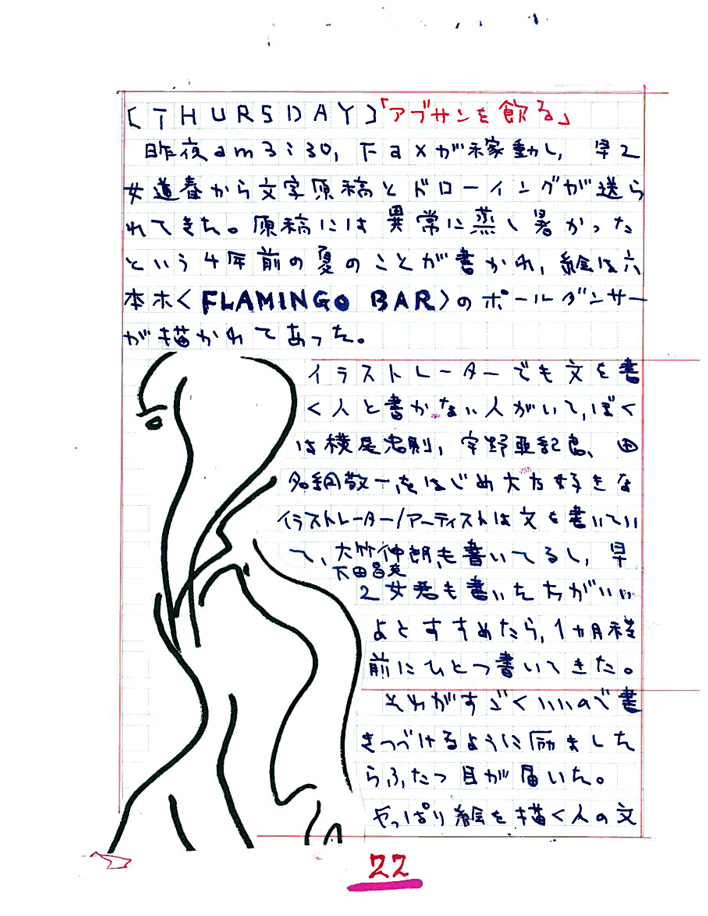 [THURSDAY]「アブサンを飲る」
昨夜am3:30, Faxが稼動し, 早乙
女道春から文字原稿とドローイングが送ら
れてきた。原稿には異常に蒸し暑かった
という4年前の夏のことが書かれ, 絵は六
本木〈FLAMINGO BAR〉のポールダンサー
が描かれてあった。
イラストレーターでも文を書
く人と書かない人がいて, ぼく
は横尾忠則, 宇野亜記良, 田
名網敬一をはじめ大方好きな
イラストレーター/アーティストは文を書いてい
て, 大竹伸朗も書いてるし, 早
下田昌克
乙女君も書いた方がいい
よとすすめたら, 1ヵ月程
前にひとつ書いてきた。
それがすごくいいので書
きつづけるように励ました
らふたつ目が届いた。
やっぱり絵を描く人の文
22